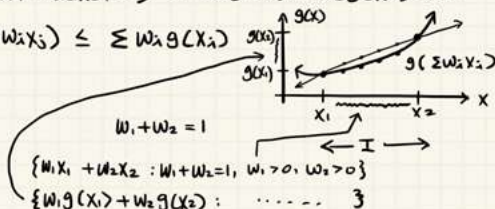 wᵢxᵢ) ≤ Σ wᵢ g(xᵢ)
g(x)
g(x₂)
g(x₁)
g(Σwᵢxᵢ)
x₁
x₂
x
I
w₁+w₂ = 1
{w₁x₁ + w₂x₂ : w₁+w₂=1, w₁>0, w₂>0}
{w₁g(x₁) + w₂g(x₂) : ...... }